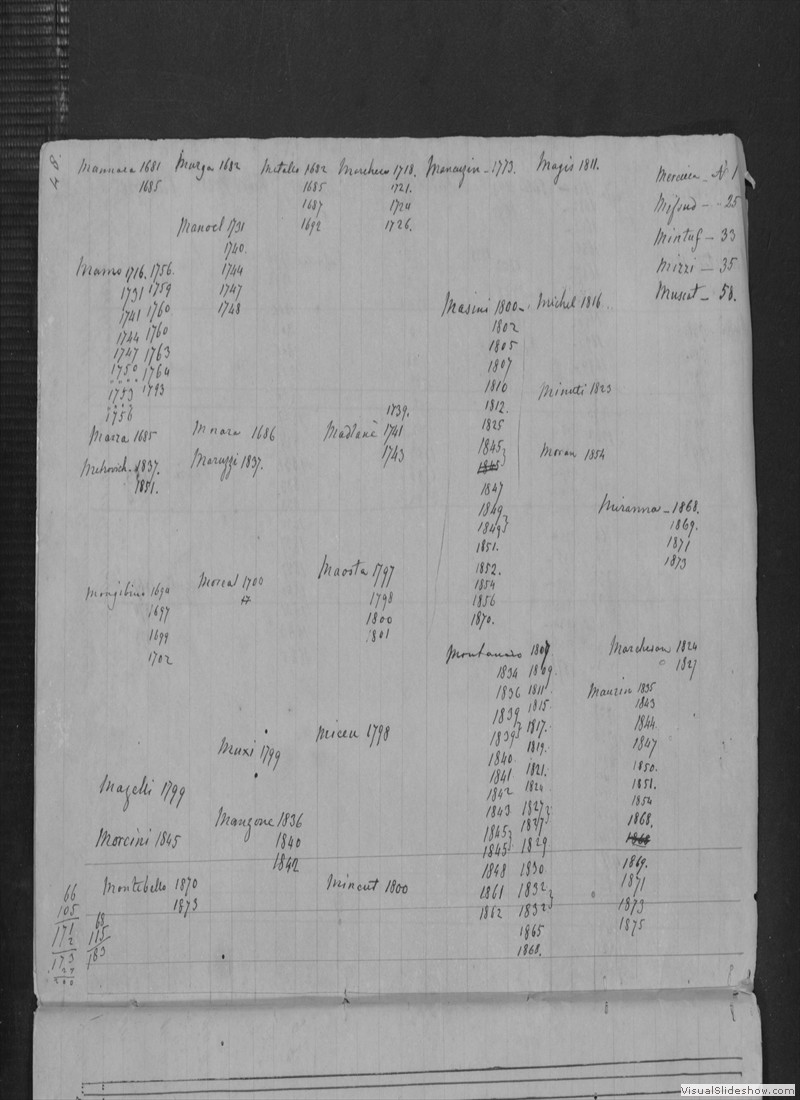 48.
Mannara 1681
1685
Murga 1682
Manoel 1731
1740.
1744
1747
1748
1682
1685
1687
1692
1718.
1721.
1724
1726.
1773.
Magis 1811.
Mercieca - N 1
Mifsud - 25
Mintuf - 33
Mizzi - 35
Muscat - 58.
Mamo 1716. 1756.
1731 1759
1741 1760
1744 1760
1747 1763
1750 1764
1753 1793
1756
Masini 1800
1802
1805
1807
1810
1812.
1825
1845
1845
1847
1849
1849
1851.
1852.
1854
1856
1870.
Michel 1816
Minuti 1823
Moran 1854
1685
1686
1739.
1741
1743
1837.
1851.
Maruzzi 1837.
Miranna - 1868.
1869.
1871
1873
1690
1697
1699
1702
1700
Maosta 1797
1798
1800
1801
Montanaro 1807
1834 1809.
1836 1811.
1839 1815.
1839 1817.
1840 1819.
1841 1821.
1842 1824
1843 1827
1845 1827
1845 1829
1848 1830
1861 1832
1862 1832
1865
1868.
1824
1827
1835
1843
1844
1847
1850.
1851.
1854
1868.
1868
1869.
1871
1873
1875
Muxi 1799
1798
Magelli 1799
Mangone 1836
1840
1842
Morcini 1845
Montebello 1870
1873
Mincut 1800
66
105
171
2
173
27
200
68
115
183
VisualSlideshow.com